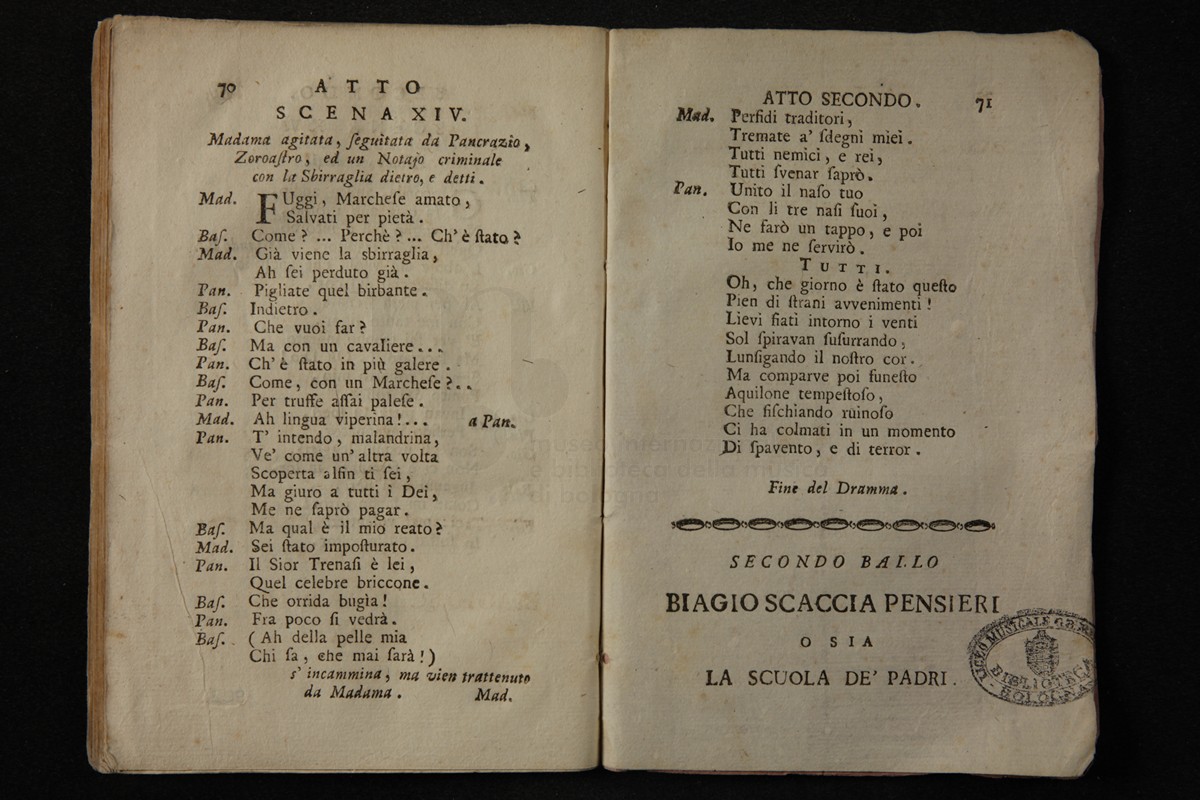 70 ATTO
SCENA XIV.
Madama agitata, ſeguitata da Pancrazio,
Zoroaſtro, ed un Notajo criminale
con la Sbirraglia dietro, e detti.
Mad. FUggi, Marcheſe amato,
Salvati per pietà.
Baſ. Come? ... Perchè? ... Ch' è ſtato?
Mad. Già viene la sbirraglia,
Ah ſei perduto già.
Pan. Pigliate quel birbante.
Baſ. Indietro.
Pan. Che vuoi far?
Baſ. Ma con un cavaliere...
Pan. Ch' è ſtato in più galere.
Baſ. Come, con un Marcheſe?..
Pan. Per truffe aſſai paleſe.
Mad. Ah lingua viperina!... a Pan.
Pan. T' intendo, malandrina,
Ve' come un' altra volta
Scoperta alfin ti ſei,
Ma giuro a tutti i Dei,
Me ne ſaprò pagar.
Baſ. Ma qual è il mio reato?
Mad. Sei ſtato impoſturato.
Pan. Il Sior Trenaſi è lei,
Quel celebre briccone.
Baſ. Che orrida bugìa!
Pan. Fra poco ſi vedrà.
Baſ. (Ah della pelle mia
Chi ſa, che mai ſarà!)
s' incammina, ma vien trattenuto
da Madama. Mad.
ATTO SECONDO. 71
Mad. Perfidi traditori,
Tremate a' ſdegni miei.
Tutti nemici, e rei,
Tutti ſvenar ſaprò.
Pan. Unito il naſo tuo
Con li tre naſi ſuoi,
Ne farò un tappo, e poi
Io me ne ſervirò.
TUTTI.
Oh, che giorno è ſtato queſto
Pien di ſtrani avvenimenti!
Lievi fiati intorno i venti
Sol ſpiravan ſuſurrando,
Lunſigando il noſtro cor.
Ma comparve poi funeſto
Aquilone tempeſtoſo,
Che fiſchiando ruinoſo
Ci ha colmati in un momento
Di ſpavento, e di terror.
Fine del Dramma.
SECONDO BALLO
BIAGIO SCACCIA PENSIERI
O SIA
LA SCUOLA DE' PADRI.
LICEO MUSICALE G.B.
BIBLIOTECA
BOLOGNA
museo internaz
e biblioteca della musica
di bologna